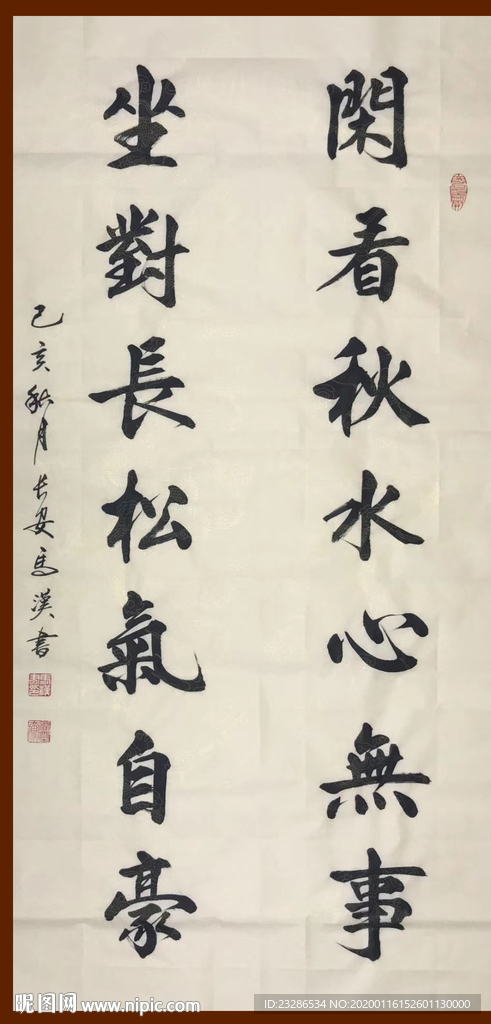 閑看秋水心無事
坐對長松氣自豪
己亥秋月长安马漢書
昵图网 www.nipic.com
ID:23286534 NO:20200116152601130000